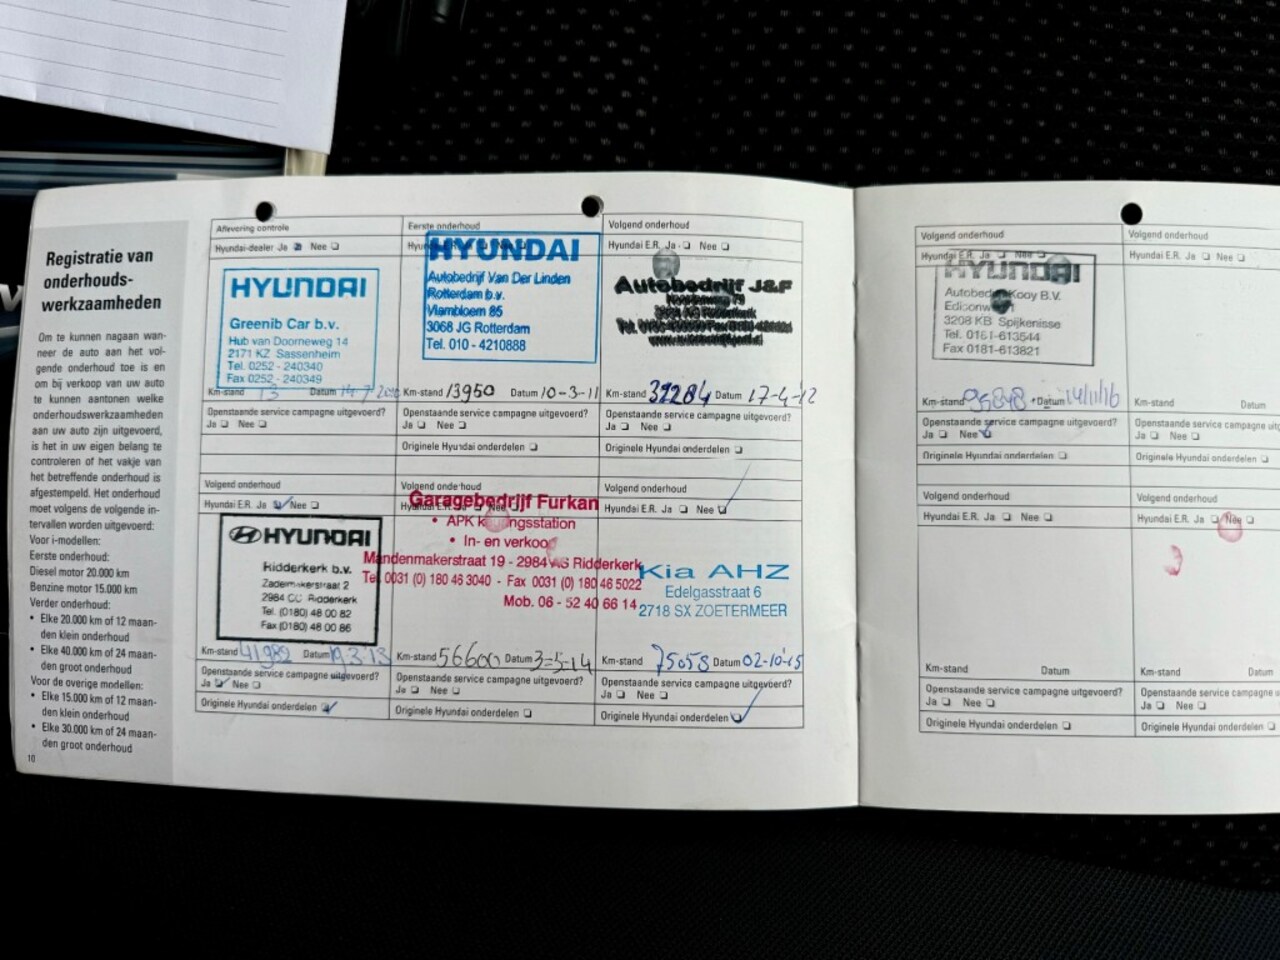 Registratie van
onderhouds-
werkzaamheden
Om te kunnen nagaan wan-
neer de auto aan het vol-
gende onderhoud toe is en
om bij verkoop van uw auto
te kunnen aantonen welke
onderhoudswerkzaamheden
aan uw auto zijn uitgevoerd,
is het in uw eigen belang te
controleren of het vakje van
het betreffende onderhoud is
afgestempeld. Het onderhoud
moet volgens de volgende in-
tervallen worden uitgevoerd:
Voor i-modellen:
Eerste onderhoud:
Diesel motor 20.000 km
Benzine motor 15.000 km
Verder onderhoud:
• Elke 20.000 km of 12 maan-
den klein onderhoud
• Elke 40.000 km of 24 maan-
den groot onderhoud
Voor de overige modellen:
• Elke 15.000 km of 12 maan-
den klein onderhoud
• Elke 30.000 km of 24 maan-
den groot onderhoud
10
Aflevering controle
Hyundai-dealer Ja Nee
HYUNDAI
Greenib Car b.v.
Hub van Doorneweg 14
2171 KZ Sassenheim
Tel. 0252 - 240340
Fax 0252 - 240349
Km-stand 13 Datum
Openstaande service campagne uitgevoerd?
Ja Nee
Eerste onderhoud
HYUNDAI
Autobedrijf Van Der Linden
Rotterdam b.v.
Vlambloem 85
3068 JG Rotterdam
Tel. 010 - 4210888
Km-stand 13950 Datum 10-3-11
Openstaande service campagne uitgevoerd?
Ja Nee
Originele Hyundai onderdelen
Volgend onderhoud
Hyundai E.R. Ja Nee
Autobedrijf J&F
Km-stand 32284 Datum 17-4-'12
Openstaande service campagne uitgevoerd?
Ja Nee
Originele Hyundai onderdelen
Volgend onderhoud
Hyundai E.R. Ja Nee
HYUNDAI
Ridderkerk b.v.
Zademakerstraat 2
2984 CC Ridderkerk
Tel. (0180) 48 00 82
Fax (0180) 48 00 86
Km-stand 41982 Datum 19.3.13
Openstaande service campagne uitgevoerd?
Ja Nee
Originele Hyundai onderdelen
Volgend onderhoud
Hyundai E.R. Ja Nee
Garagebedrijf Furkan
• APK keuringsstation
• In- en verkoop
Mandenmakerstraat 19 - 2984 AS Ridderkerk
Tel. 0031 (0) 180 46 3040 - Fax 0031 (0) 180 46 5022
Mob. 06 - 52 40 66 14
Km-stand 56600 Datum 3-5-14
Openstaande service campagne uitgevoerd?
Ja Nee
Originele Hyundai onderdelen
Volgend onderhoud
Hyundai E.R. Ja Nee
Kia AHZ
Edelgasstraat 6
2718 SX ZOETERMEER
Km-stand 75058 Datum 02-10-'15
Openstaande service campagne uitgevoerd?
Ja Nee
Originele Hyundai onderdelen
Volgend onderhoud
Hyundai E.R. Ja Nee
HYUNDAI
Autobedrijf Kooy B.V.
3208 KB Spijkenisse
Tel. 0181-613544
Fax 0181-613821
Km-stand 95848 Datum 14/11/16
Openstaande service campagne uitgevoerd?
Ja Nee
Originele Hyundai onderdelen
Volgend onderhoud
Hyundai E.R. Ja Nee
Km-stand Datum
Openstaande service campagne uitg
Ja Nee
Originele Hyundai onderdelen
Volgend onderhoud
Hyundai E.R. Ja Nee
Km-stand Datum
Openstaande service campagne uitgevoerd?
Ja Nee
Originele Hyundai onderdelen
Volgend onderhoud
Hyundai E.R. Ja Nee
Km-stand Datum
Openstaande service campagne u
Ja Nee
Originele Hyundai onderdelen